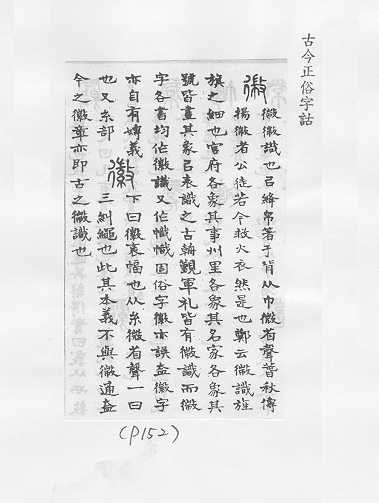 古今正俗字詁
徽 徽徽識也㠯絳帛箸于背从巾微省聲春秋傳
揚徽者公徒若今救火衣然是也鄭云徽識旌
旗之細也官府各象其事州里各象其名家各象其
號皆畫其象㠯表識之古朝覲軍礼皆有徽識而徽
字各書均作徽識又作幟幟固俗字徽亦誤盍徽字
亦自有嫥義 徽 下曰徽衺幅也从糸微省聲一曰
也又糸部 三糾繩也此其本義不與徽通盍
今之徽章亦即古之徽識也
(P152)